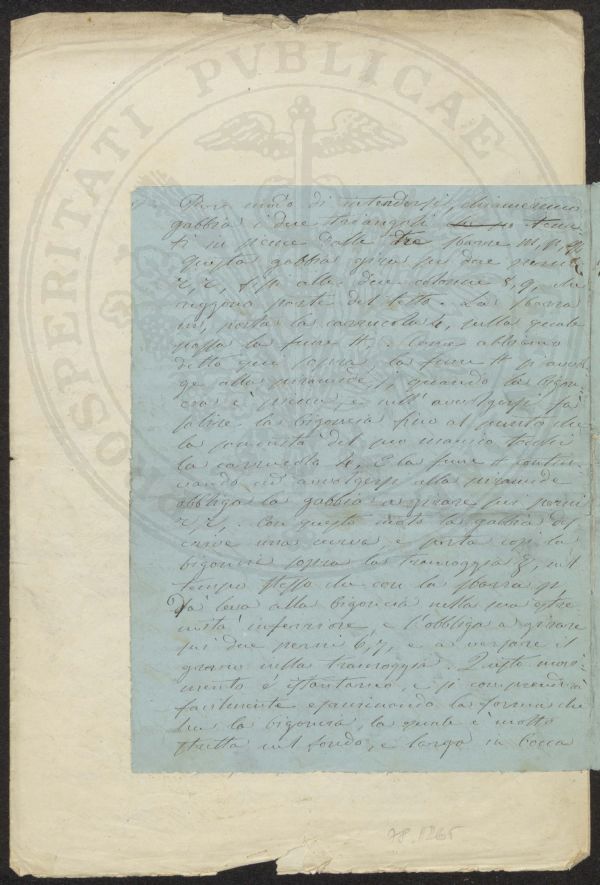 PROSPERITATI PVBLICAE
Pure modo di intenderesi, chiameremo
gabbia i due triangoli tenu
ti in sieme dalle tre sbarre m, p, q,
questa gabbia gira sui due perni
r, r, fissi alle due colonne s, q, che
reggono parte del tetto. La sbarra
m, porta la carrucola 4, sulla quale
passa la fune H. Come abbiamo
detto qui sopra la fune H si avol
ge alla piramide, i, quando la bigon
cia è piena, e nell'avvolgersi fa
salire la bigoncia fino al punto che
la sommità del suo manico tocchi
la carrucola 4, e la fune H contin
uando ad avvolgersi alla piramide
obbliga la gabbia a girare sui perni
r, r,. Con questo moto la gabbia des
crive una curva, e porta così la
bigoncia sopra la tramoggia Z, nel
tempo stesso che con la sbarra p
dà leva alla bigoncia nella sua estre
mità inferiore, e l'obbliga a girare
sui due perni 6, 7, e a versare il
grano nella tramoggia. Questo movi
mento è istantaneo, e si comprenderà
facilmente esaminando la forma che
ha la bigoncia, la quale è molto
stretta nel fondo, e larga in bocca
78.1265